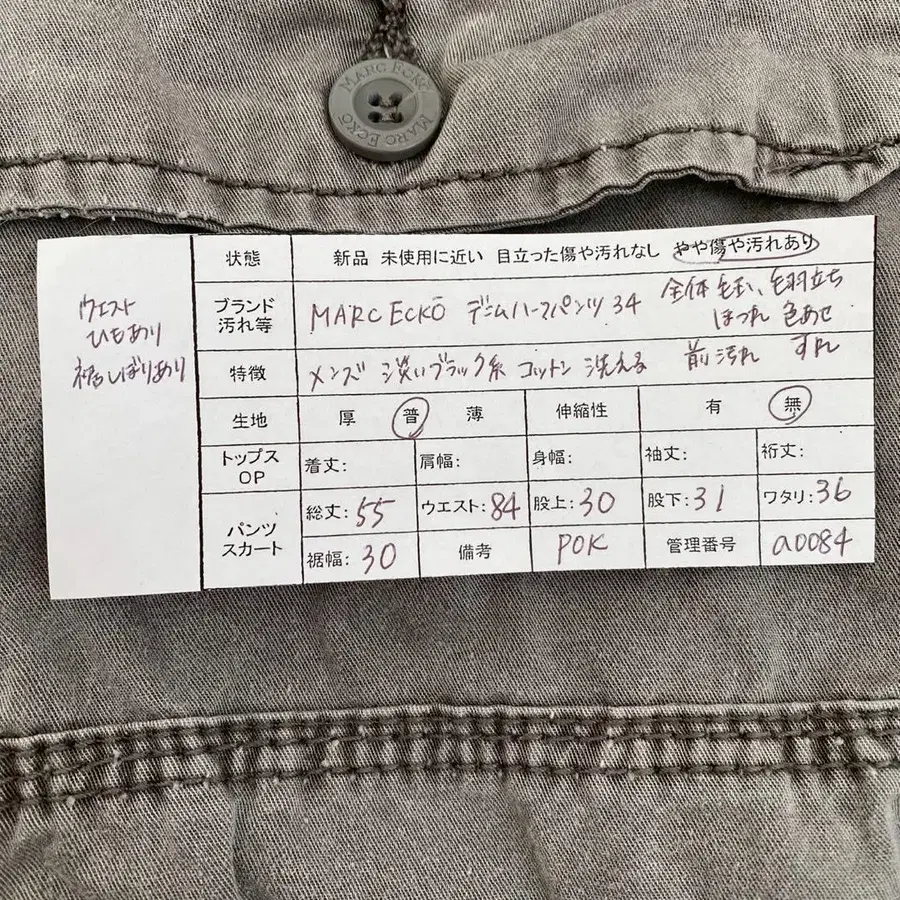 MARC ECKO MARC ECKO
ウエスト
ひもあり
裾しぼりあり
状態 新品 未使用に近い 目立った傷や汚れなし やや傷や汚れあり
ブランド 汚れ等 MARC ECKO デニムハーフパンツ 34 全体 毛玉、毛羽立ち
ほつれ 色あせ
特徴 メンズ 淡いブラック系 コットン 洗える 前 汚れ すれ
生地 厚 普 薄 伸縮性 有 無
トップス OP 着丈: 肩幅: 身幅: 袖丈: 裄丈:
パンツ スカート 総丈: 55 ウエスト: 84 股上: 30 股下: 31 ワタリ: 36
裾幅: 30 備考 POK 管理番号 a0084